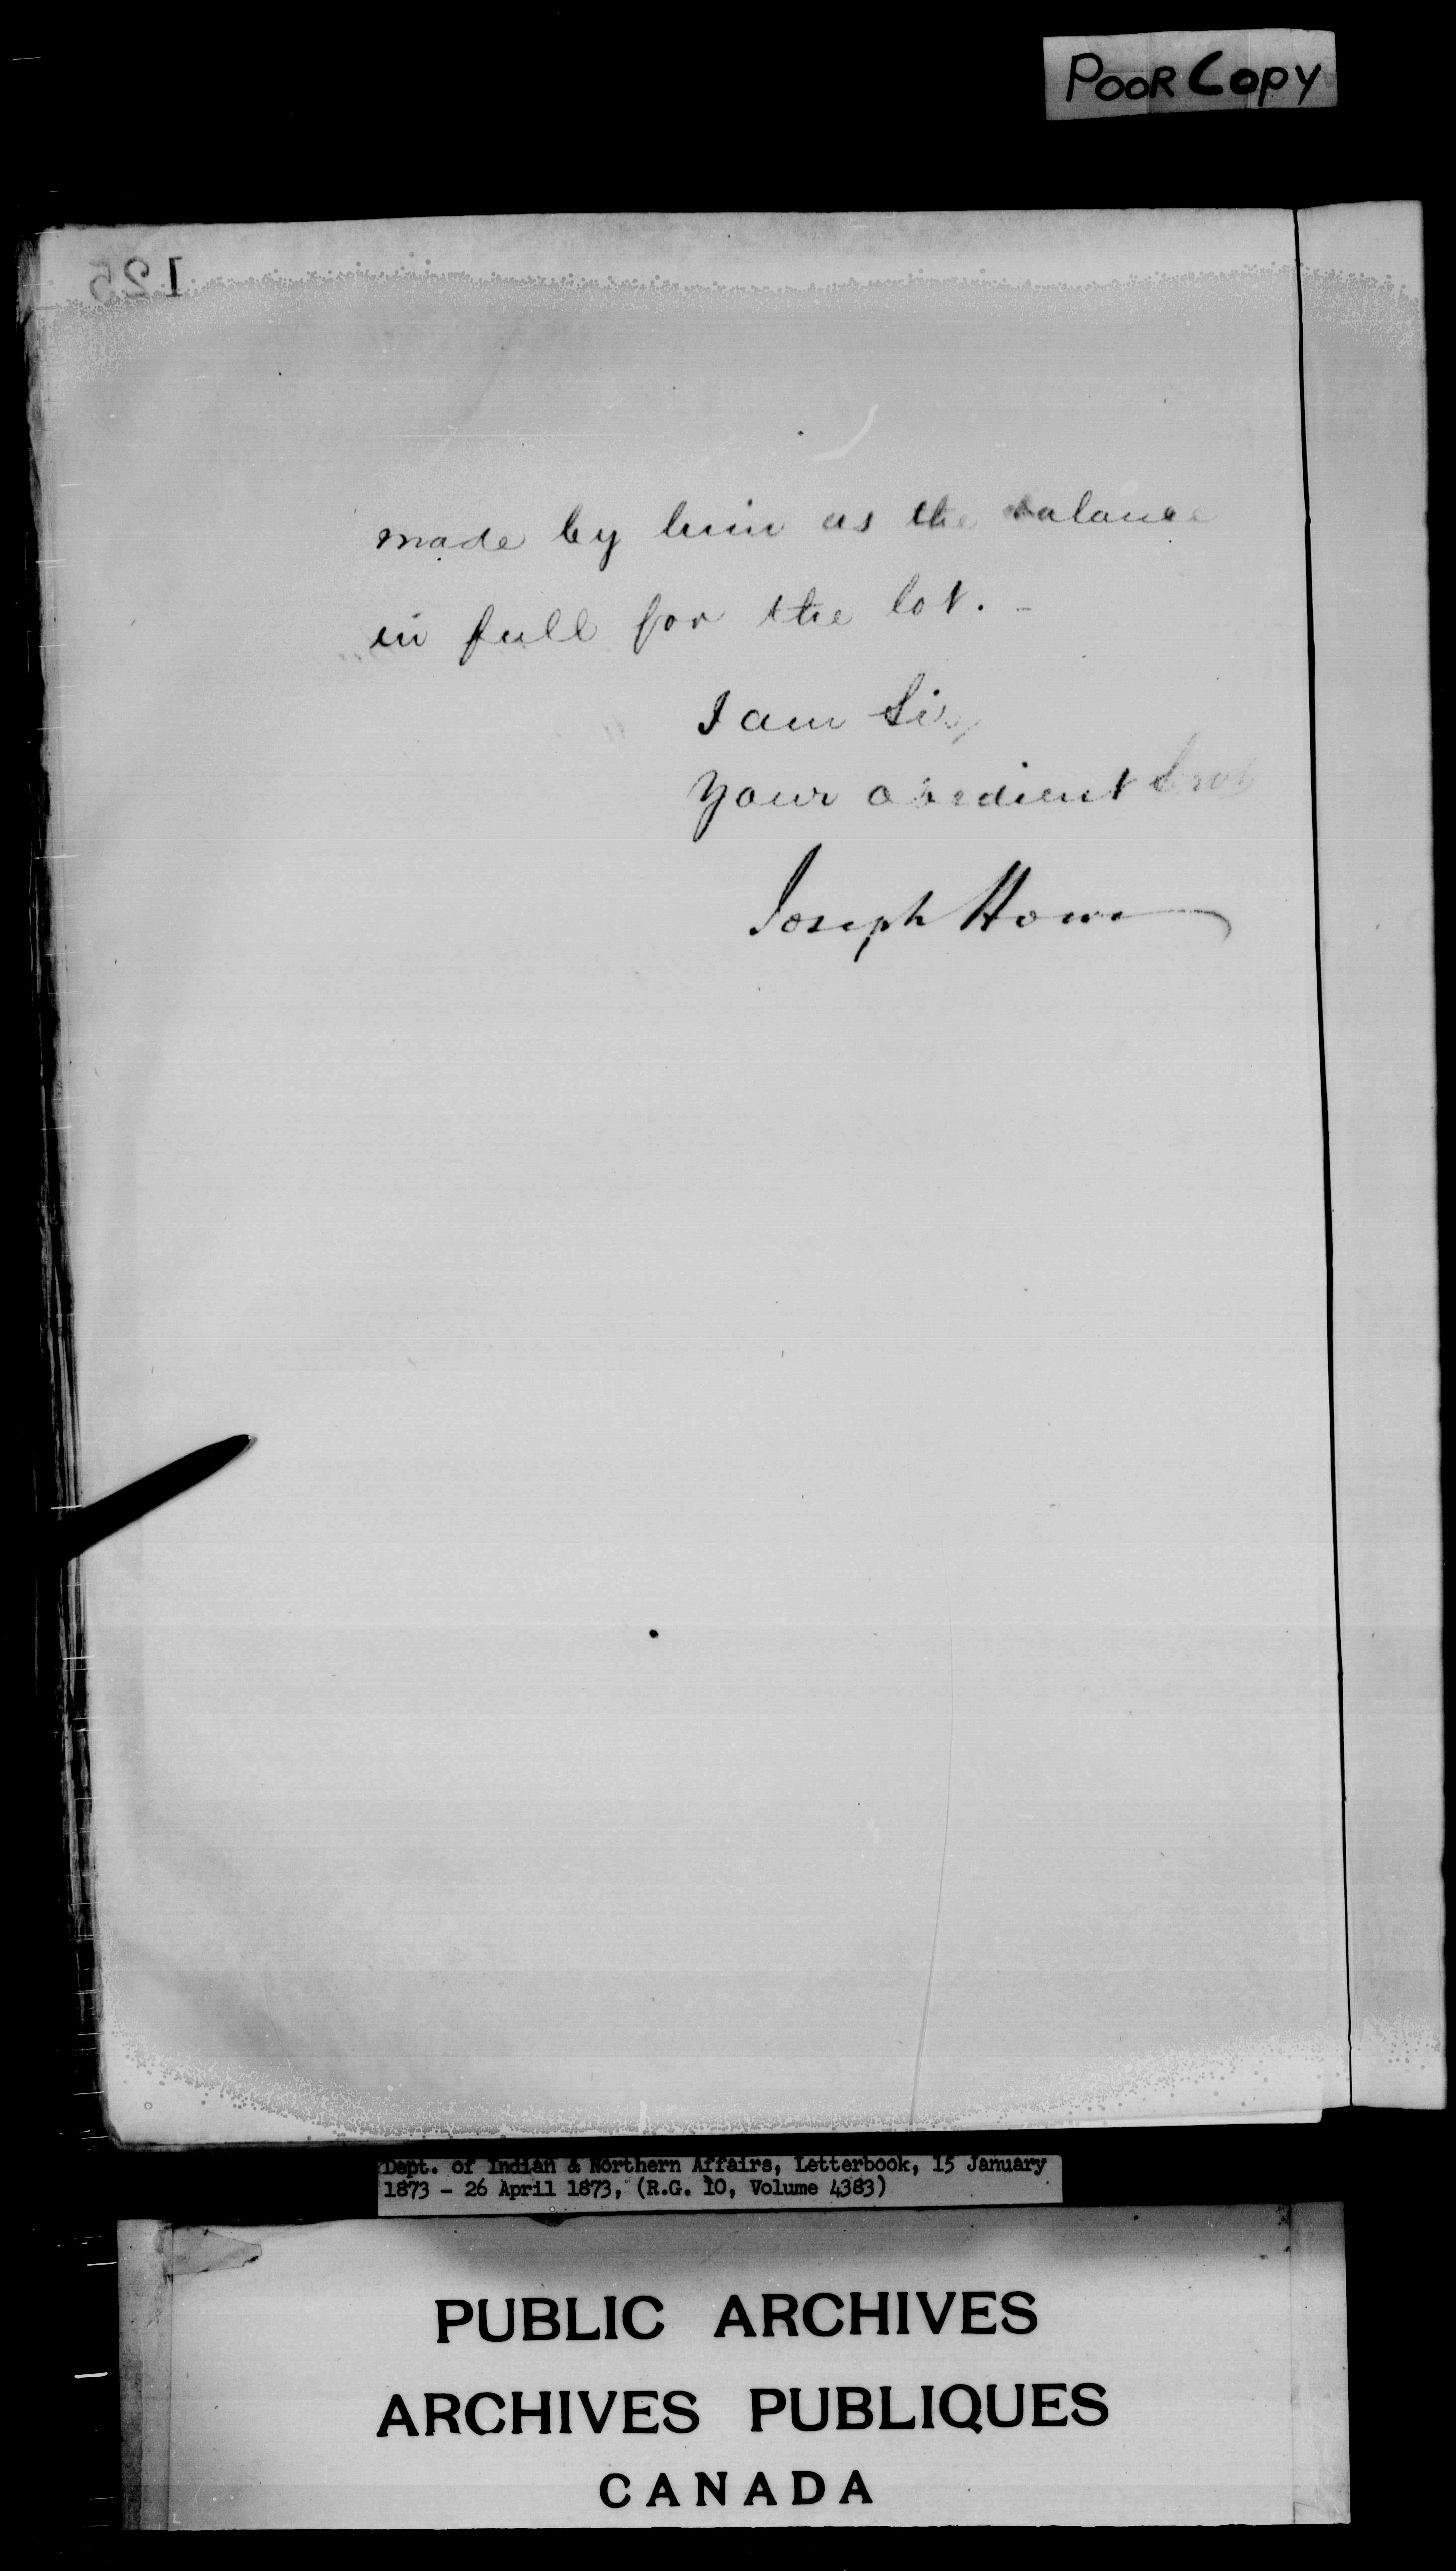 POOR COPY
125
made by him as the balance
in full for the lot. -
I am Sir,
Your obedient Srvt
Joseph Howe
Dept. of Indian & Northern Affairs, Letterbook, 15 January
1873 - 26 April 1873, (R.G. 10, Volume 4383)
PUBLIC ARCHIVES
ARCHIVES PUBLIQUES
CANADA